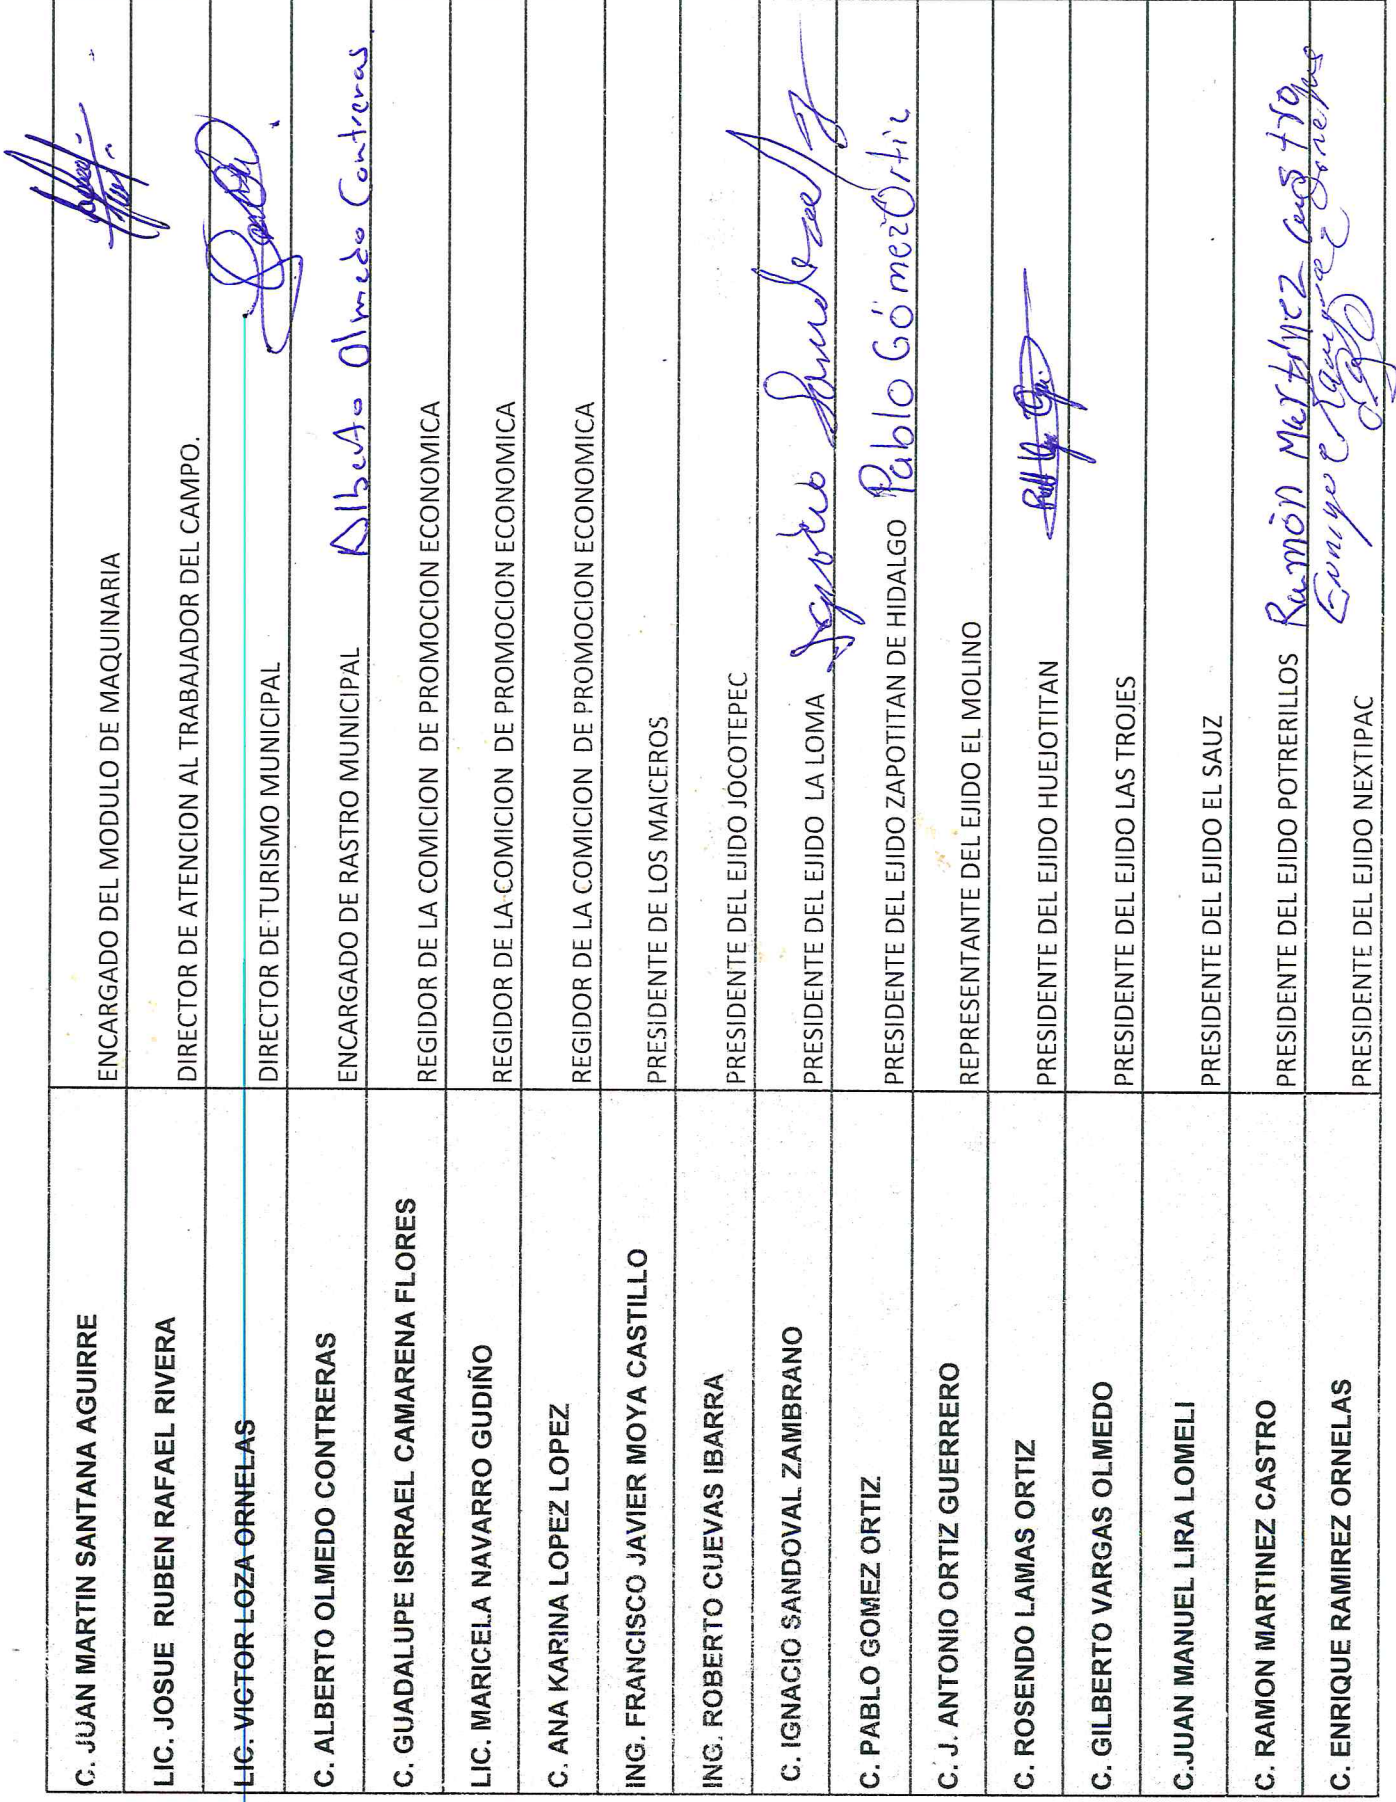 C. JUAN MARTIN SANTANA AGUIRRE ENCARGADO DEL MODULO DE MAQUINARIA
LIC. JOSUE RUBEN RAFAEL RIVERA DIRECTOR DE ATENCION AL TRABAJADOR DEL CAMPO.
LIC. VICTOR LOZA ORNELAS DIRECTOR DE TURISMO MUNICIPAL
C. ALBERTO OLMEDO CONTRERAS ENCARGADO DE RASTRO MUNICIPAL Alberto Olmedo Contreras
C. GUADALUPE ISRRAEL CAMARENA FLORES REGIDOR DE LA COMICION DE PROMOCION ECONOMICA
LIC. MARICELA NAVARRO GUDIÑO REGIDOR DE LA COMICION DE PROMOCION ECONOMICA
C. ANA KARINA LOPEZ LOPEZ REGIDOR DE LA COMICION DE PROMOCION ECONOMICA
ING. FRANCISCO JAVIER MOYA CASTILLO PRESIDENTE DE LOS MAICEROS
ING. ROBERTO CUEVAS IBARRA PRESIDENTE DEL EJIDO JOCOTEPEC
C. IGNACIO SANDOVAL ZAMBRANO PRESIDENTE DEL EJIDO LA LOMA
C. PABLO GOMEZ ORTIZ PRESIDENTE DEL EJIDO ZAPOTITAN DE HIDALGO Pablo Gómez Ortiz
C. J. ANTONIO ORTIZ GUERRERO REPRESENTANTE DEL EJIDO EL MOLINO
C. ROSENDO LAMAS ORTIZ PRESIDENTE DEL EJIDO HUEJOTITAN
C. GILBERTO VARGAS OLMEDO PRESIDENTE DEL EJIDO LAS TROJES
C.JUAN MANUEL LIRA LOMELI PRESIDENTE DEL EJIDO EL SAUZ
C. RAMON MARTINEZ CASTRO PRESIDENTE DEL EJIDO POTRERILLOS Ramón Martínez Castro
C. ENRIQUE RAMIREZ ORNELAS PRESIDENTE DEL EJIDO NEXTIPAC